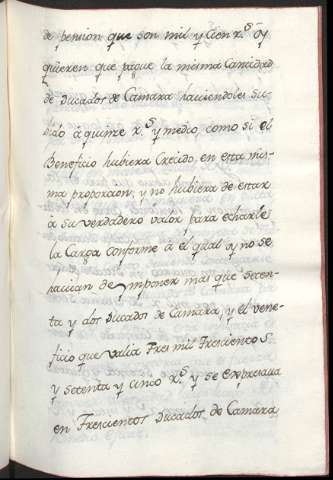 de pension que son mil y cien r.s oy
quieren que pague la misma Cantidad
de Ducados de Camara haciendoles su
bido à quinze r.s y medio, como si el
Beneficio hubiera Crecido, en esta mis-
ma proporcion, y no hubiera de estar
à su verdadero valor para echarle
la Carga conforme à el qual oy no se
havian de ymponer mas que seten-
ta y dos Ducados de Camara, y el vene-
ficio que valia Tres mil Trescientos
y setenta y cinco r.s y se expresava
en Trescientos Ducados de Camara